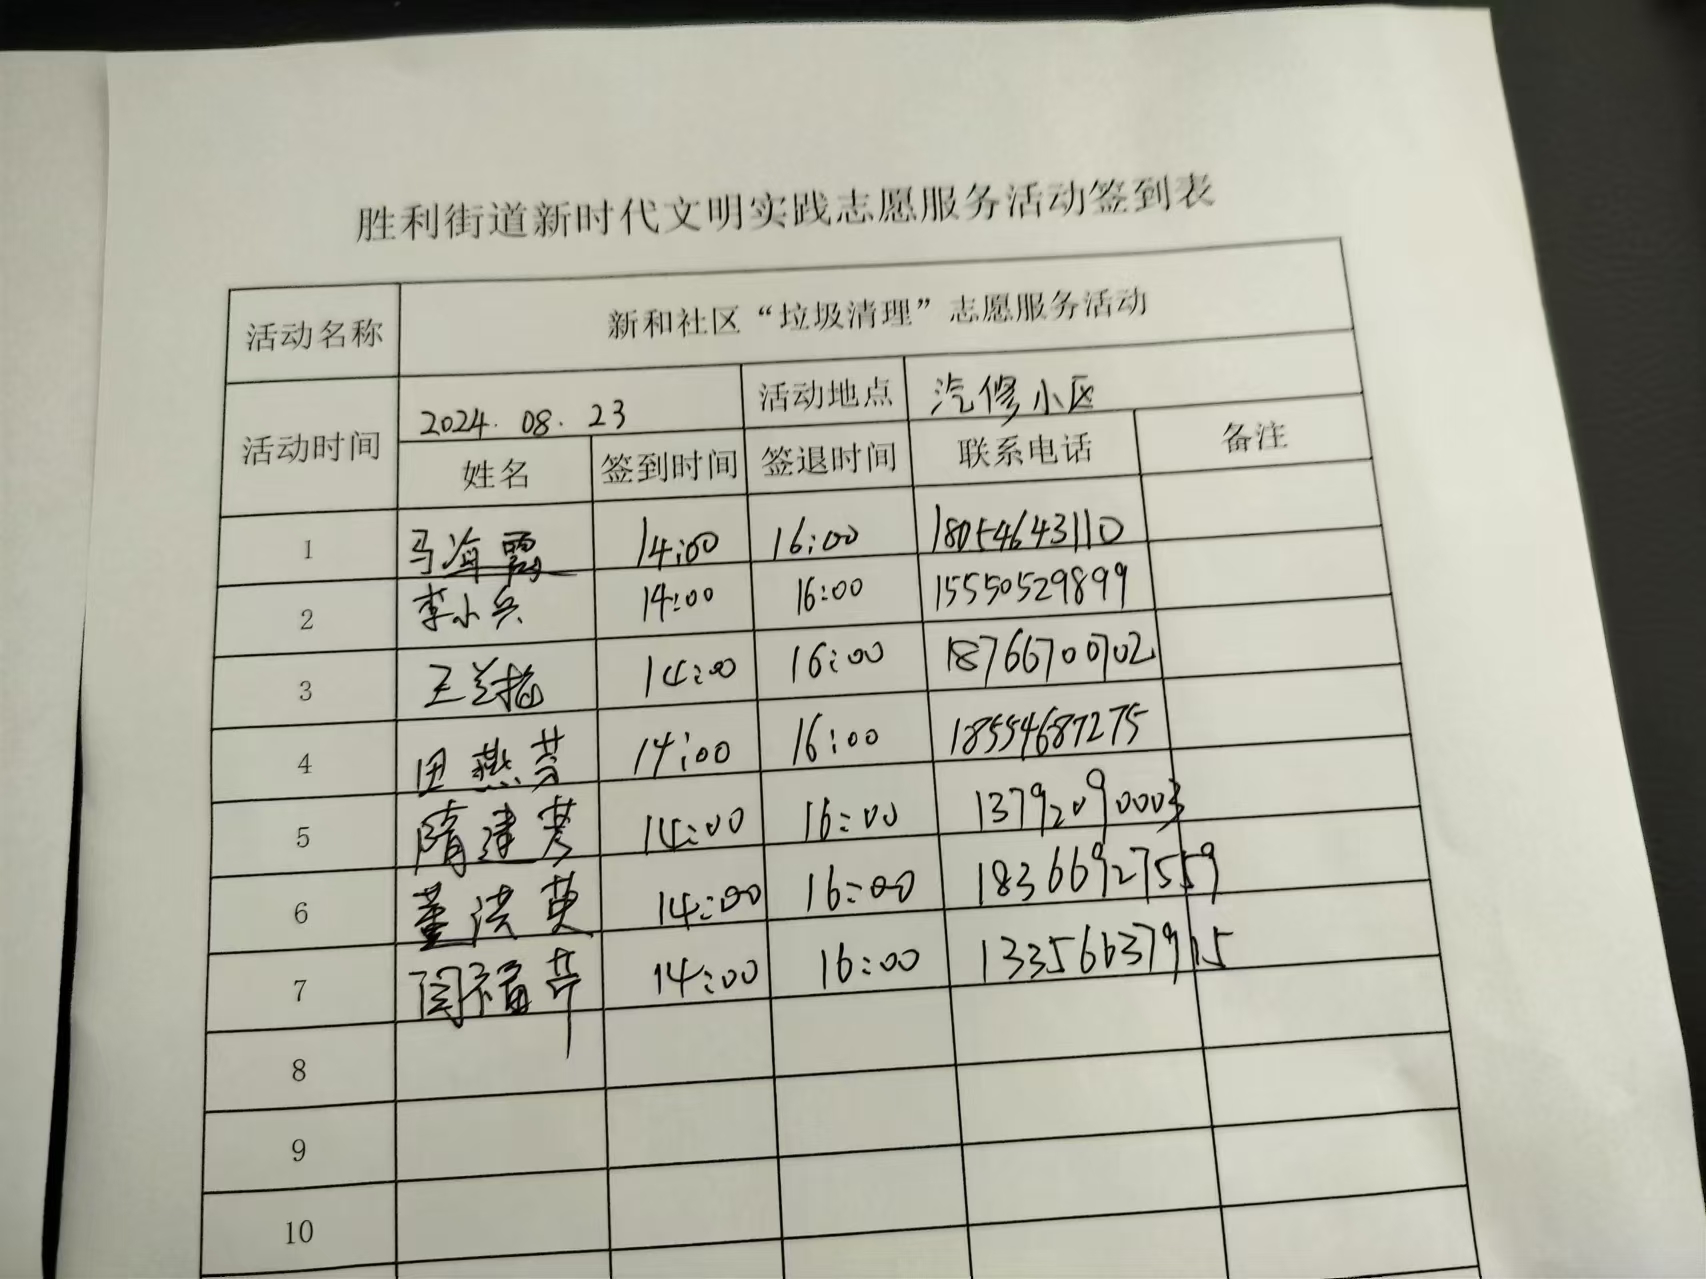 胜利街道新时代文明实践志愿服务活动签到表
活动名称 新和社区“垃圾清理”志愿服务活动
活动时间 2024.08.23 活动地点 汽修小区
姓名 签到时间 签退时间 联系电话 备注
1 马海霞 14:00 16:00 18054643110
2 李小兵 14:00 16:00 15550529899
3 王兰 14:00 16:00 18766700702
4 田燕芳 14:00 16:00 18554687275
5 隋建 14:00 16:00 13792090003
6 董洪英 14:00 16:00 18366927559
7 闫福芹 14:00 16:00 13356637915
8
9
10